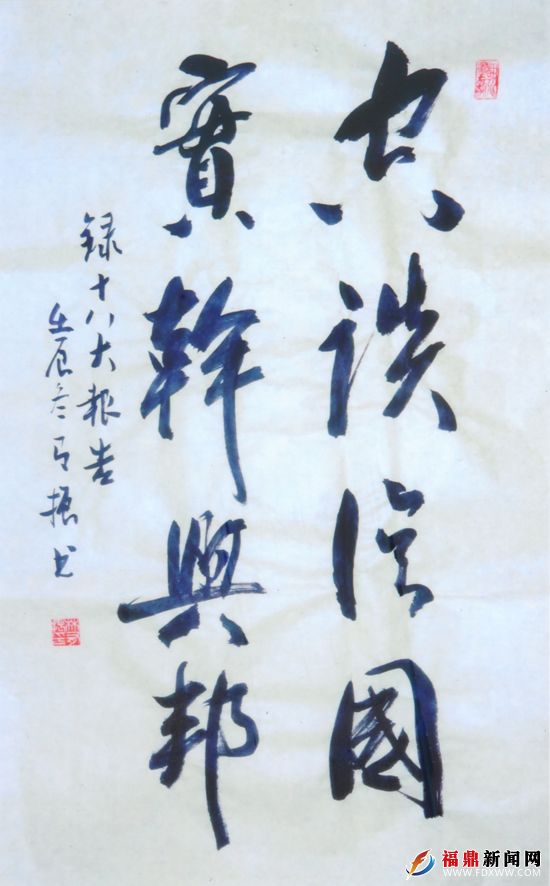 空談誤國
實幹興邦
録十八大報告
壬辰冬振书
福鼎新闻网
WWW.FDXWW.COM